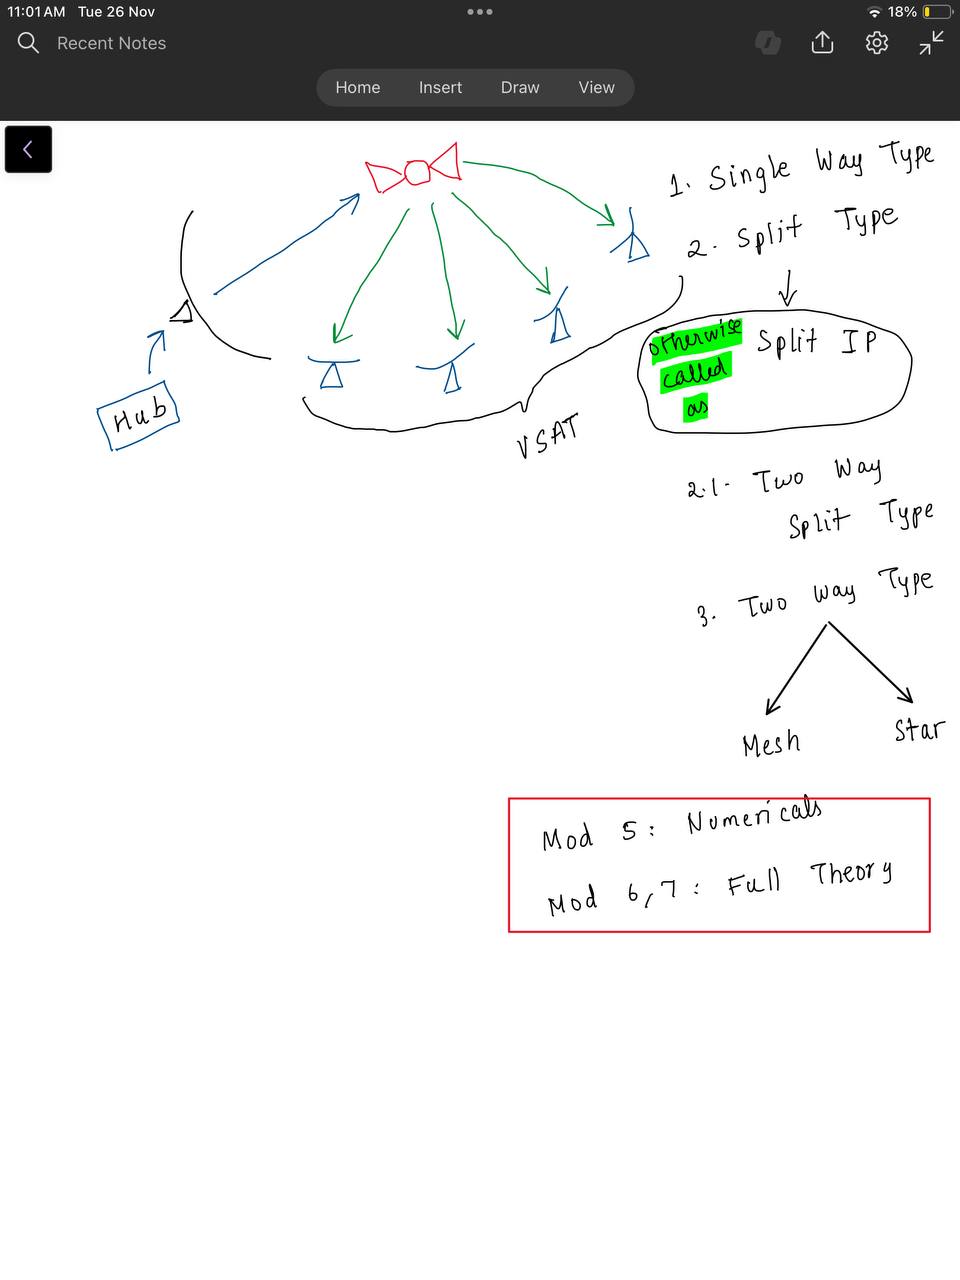 11:01 AM Tue 26 Nov
18%
Recent Notes
Home Insert Draw View
1. Single Way Type
2. Split Type
otherwise
called
as
Split IP
Hub
VSAT
2.1. Two Way
Split Type
3. Two Way Type
Mesh
Star
Mod 5: Numericals
Mod 6,7: Full Theory